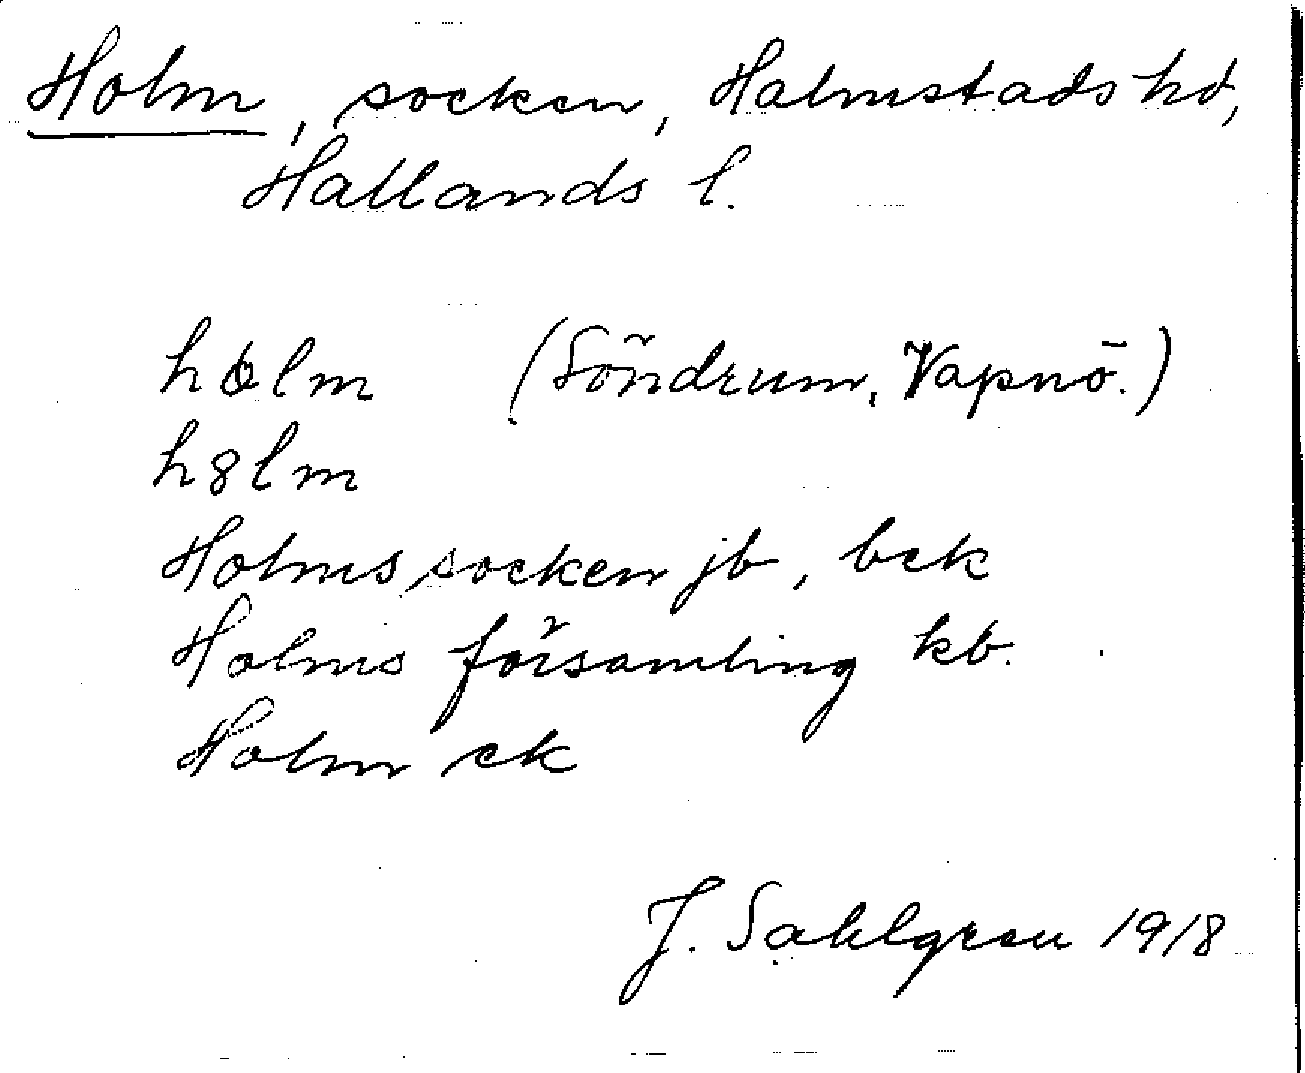 Holm, socken, Halmstads hd,
Hallands l.
holm (Söndrum, Vapnö.)
h8lm
Holms socken jb, bek
Holms församling kb.
Holm ek
J. Sahlgren 1918